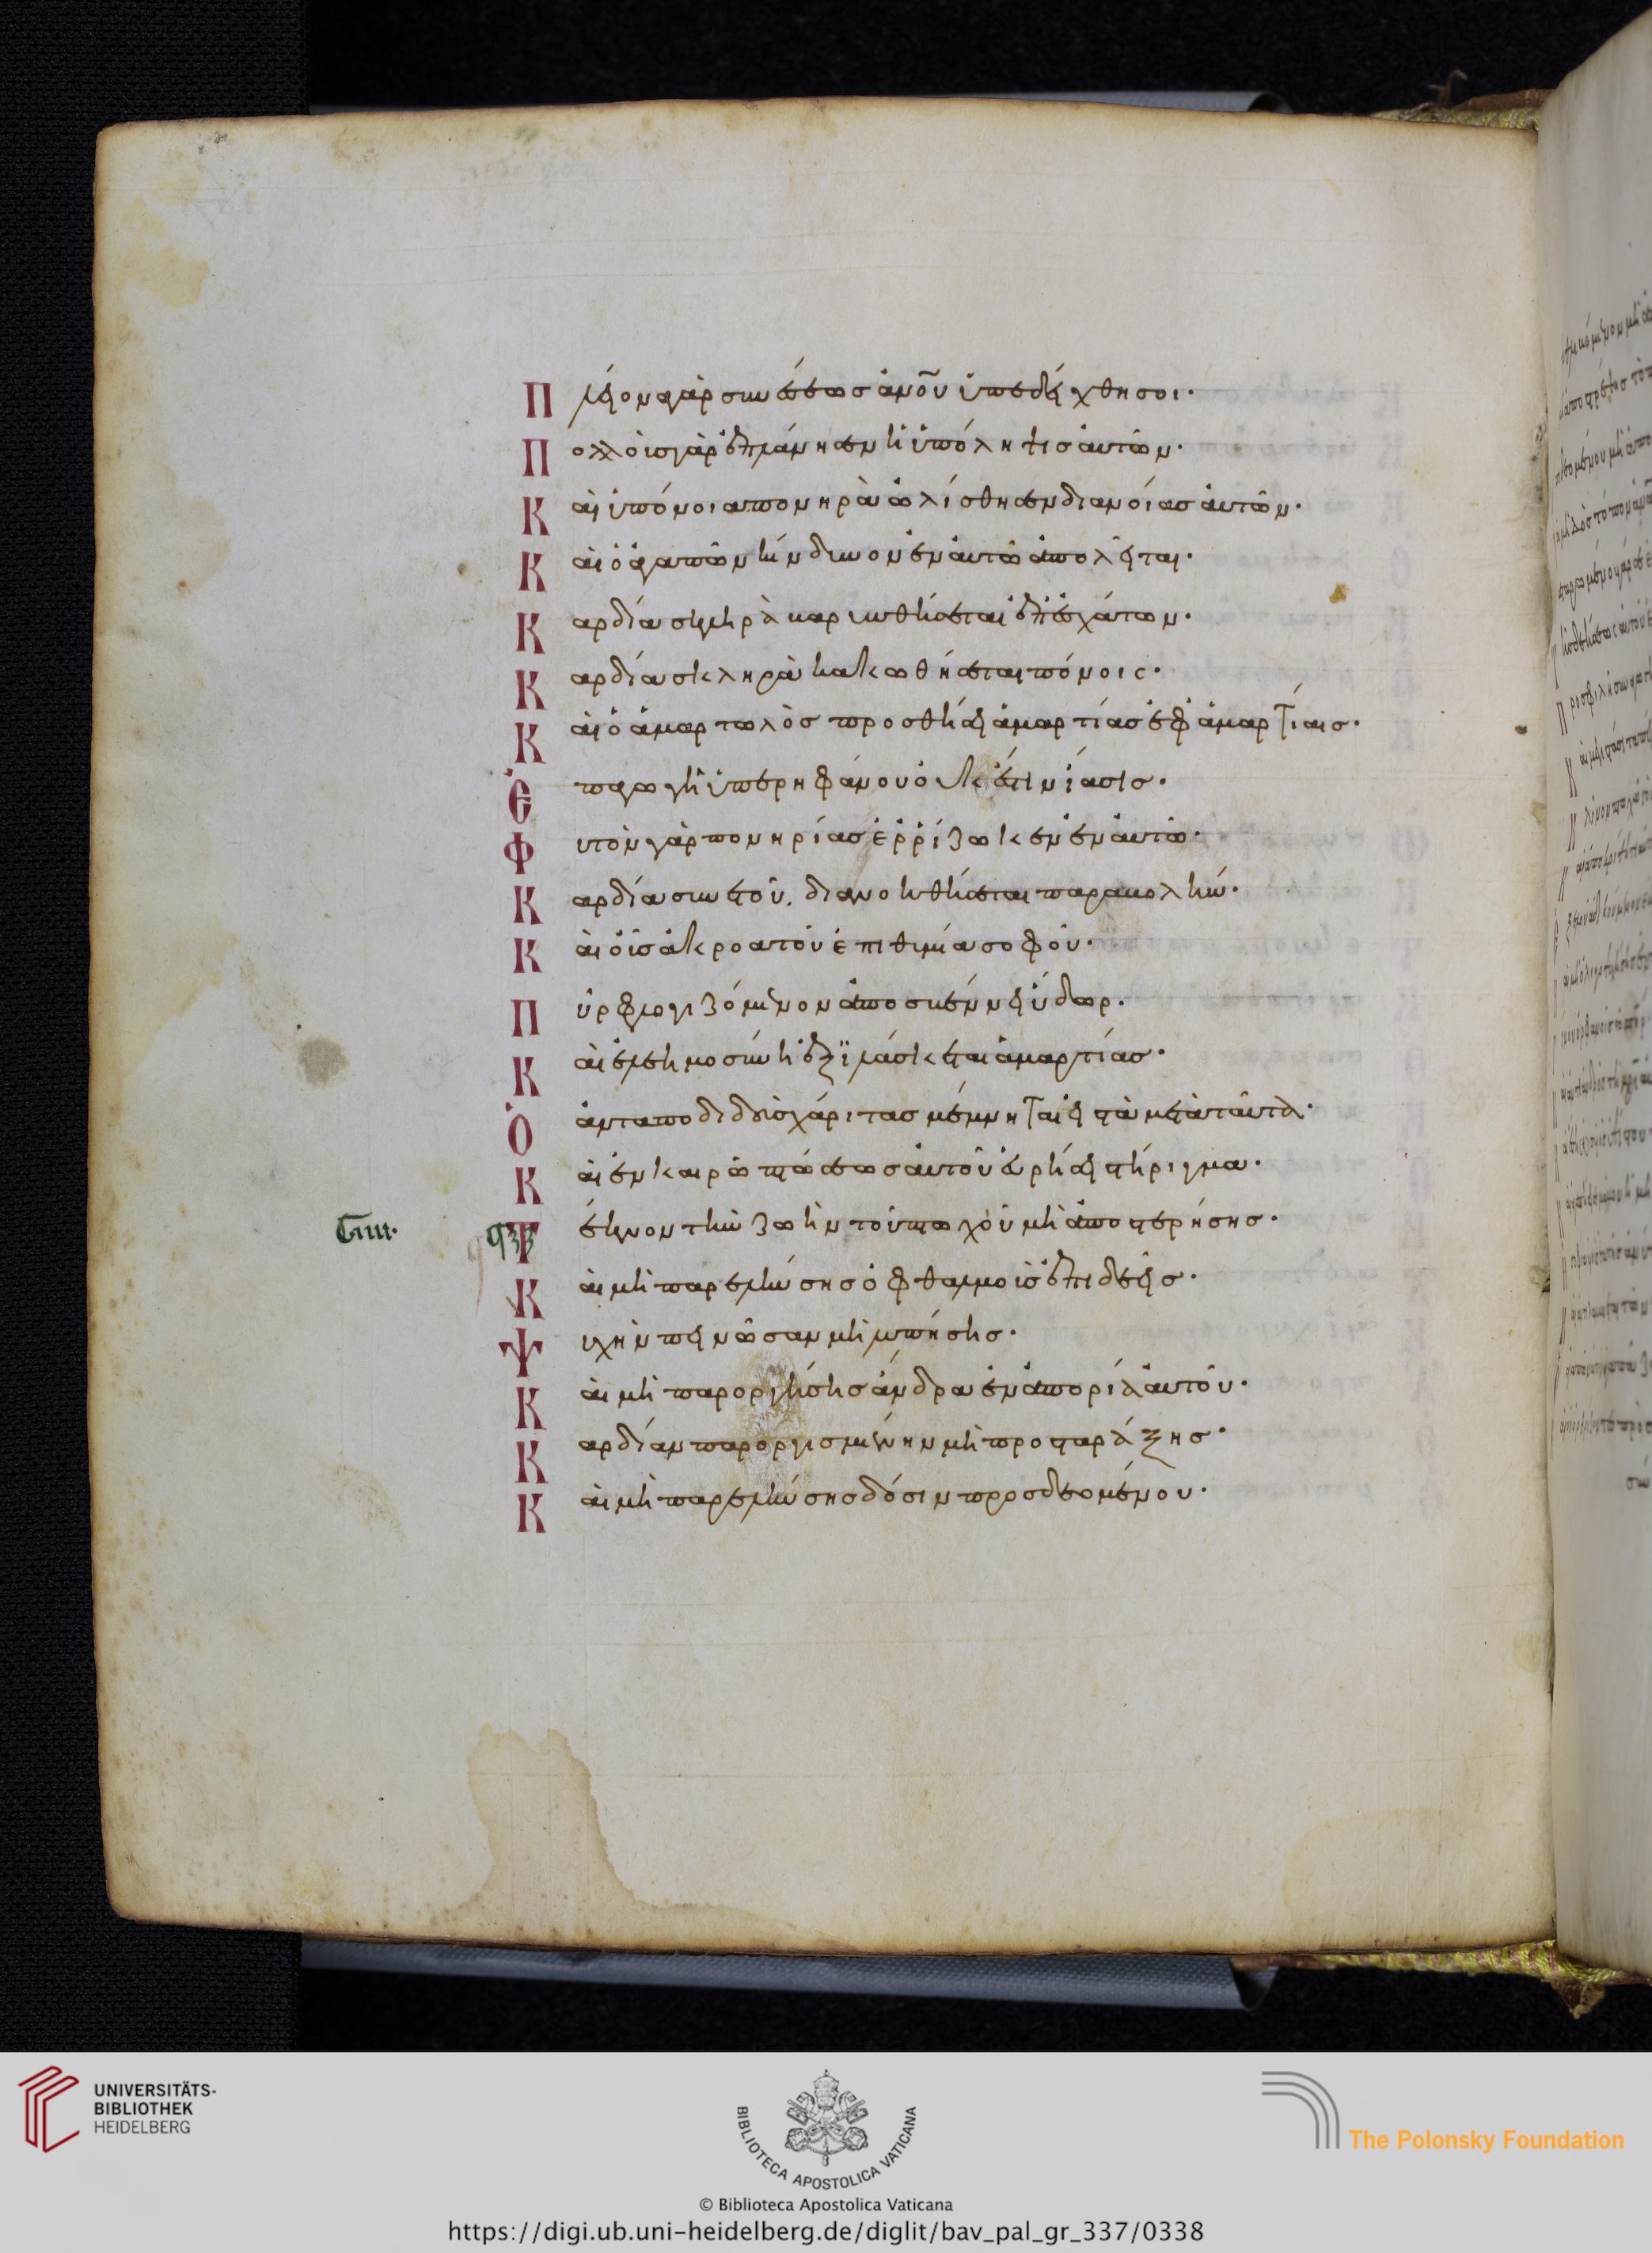 Πλείονα γὰρ συνέσεως ἀνου ὑπεδείχθη σοι·
Πολλοὺς γὰρ ἐπλάνησεν ἡ ὑπόληψις ἀυτῶν·
Καὶ ὑπόνοια πονηρὰ ὠλίσθησεν διανοίας ἀυτῶν·
Καὶ ὁ ἀγαπῶν κίνδυνον ἐν ἀυτῶ ἀπολεῖται·
Καρδία σκληρὰ καρυνθήσεται ἐπ' ἐσχάτων·
Καρδία σκληρὰ κακωθήσεται πόνοις·
Καὶ ὁ ἁμαρτωλὸς προσθήσει ἁμαρτίας ἐφ' ἁμαρτίαις·
Ἐπαγωγῆ ὑπερηφάνου ὀυκ ἔστιν ἴασις·
Φυτὸν γὰρ πονηρίας ἐρρίζωκεν ἐν ἀυτῶ·
Καρδία συνετοῦ. διανοηθήσεται παραβολήν·
Καὶ ὀῦς ἀκροατοῦ ἐπιθυμία σοφοῦ·
Πῦρ φλογιζόμενον ἀποσβέννει ὕδωρ·
Καὶ ἐλεημοσύνη ἐξιλάσκεται ἁμαρτίας·
Ὁ ἀνταποδιδοὺς χάριτας μέμνηται εἰς τὰ μετὰ ταῦτα·
Καὶ ἐν καιρῶ πτώσεως ἀυτοῦ ἑυρήσει στήριγμα·
Τέκνον τὴν ζωὴν τοῦ πτωχοῦ μὴ ἀποστερήσης·
Καὶ μὴ παρελκύσης ὀφθαλμοὺς ἐπιδεεῖς·
Ψυχὴν πεινῶσαν μὴ λυπήσης·
Καὶ μὴ παροργίσης ἄνδρα ἐν ἀπορία ἀυτοῦ·
Καρδίαν παροργισμένην μὴ προσταράξης·
Καὶ μὴ παρελκύσης δόσιν προσδεομένου·
UNIVERSITÄTS-
BIBLIOTHEK
HEIDELBERG
BIBLIOTECA APOSTOLICA VATICANA
The Polonsky Foundation
© Biblioteca Apostolica Vaticana
https://digi.ub.uni-heidelberg.de/diglit/bav_pal_gr_337/0338